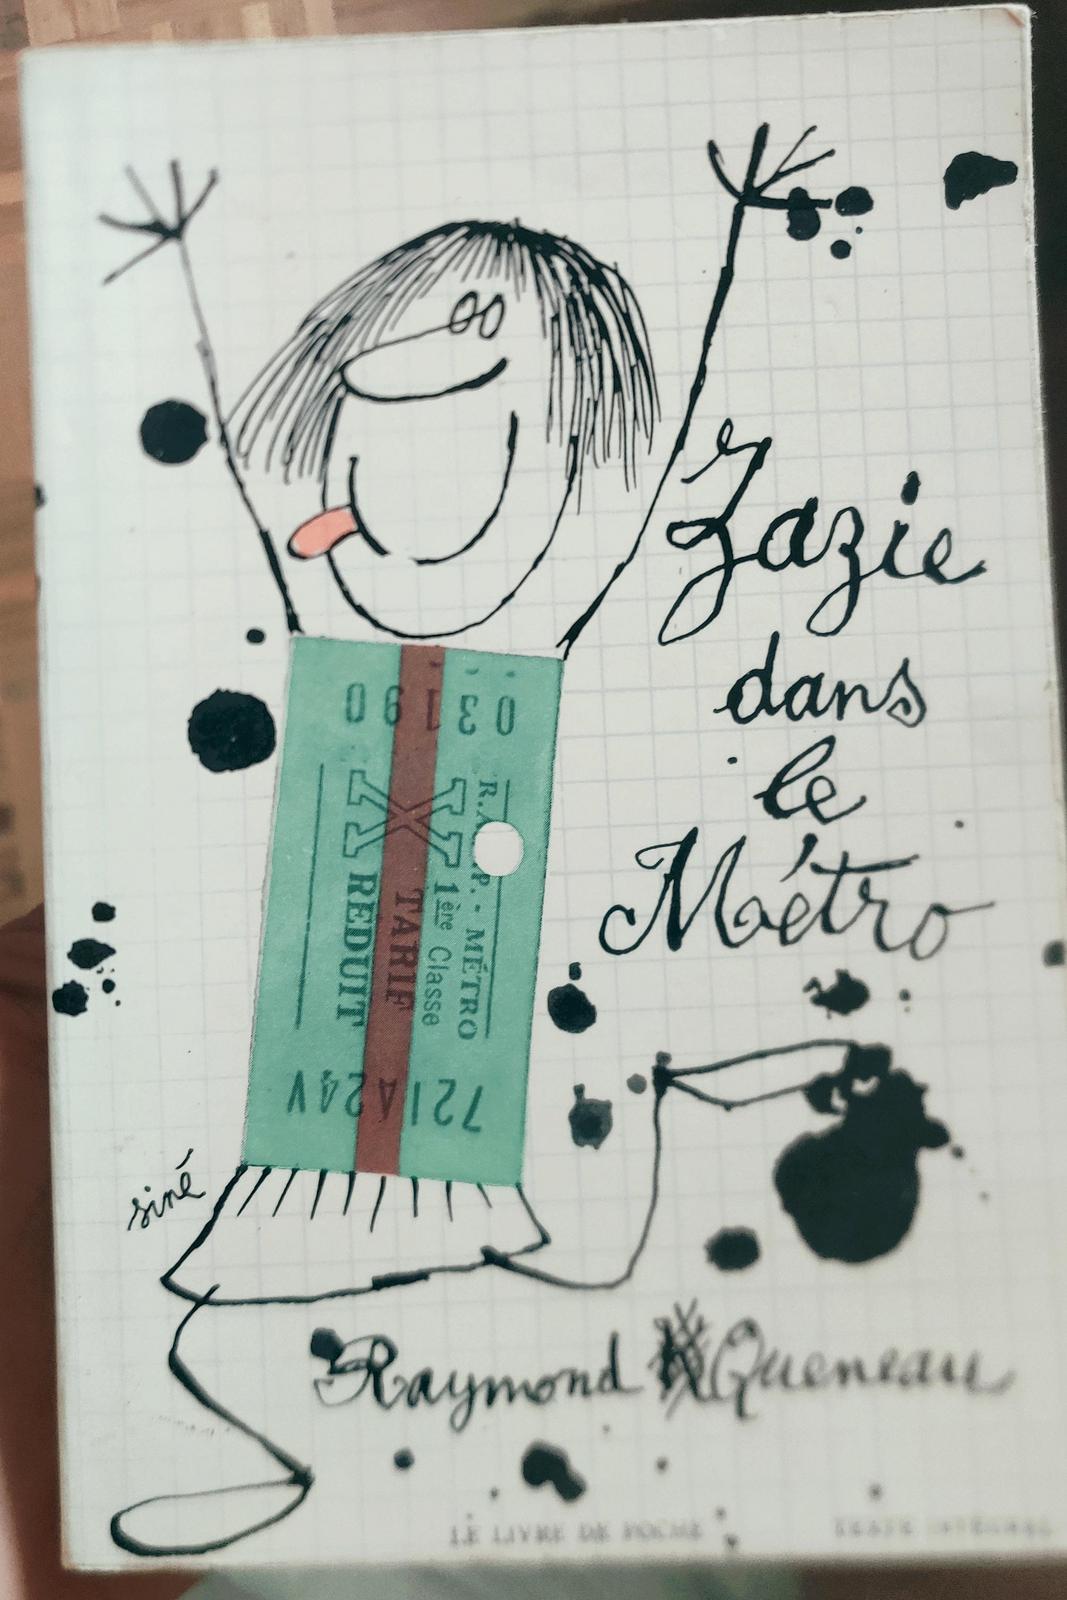 Zazie
dans
le
Métro
03190
R.A.T.P. - MÉTRO
1ère Classe
TARIF
REDUIT
721A24V
siné
Raymond Queneau
LE LIVRE DE POCHE
TEXTE INTÉGRAL